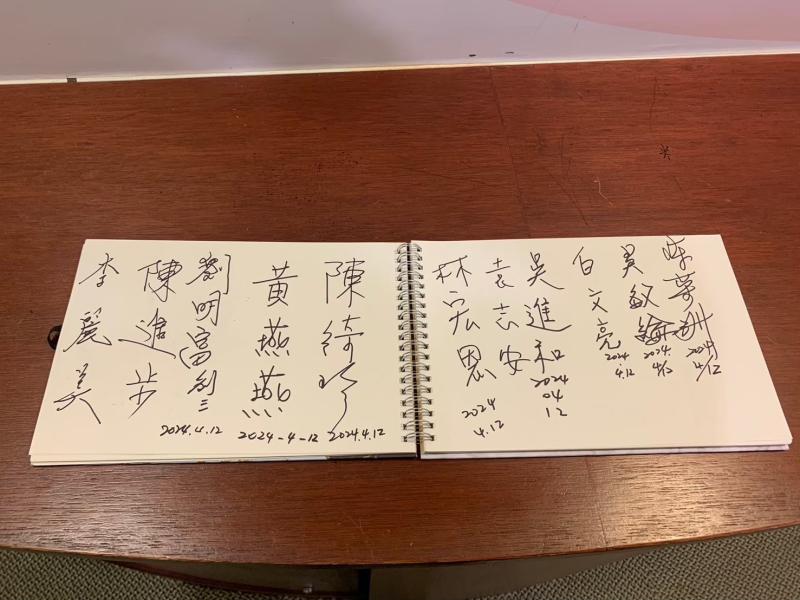 2024
4/12
吳敏
2024.
4/12
白文亮
2024
4.12
吳進和
2024
04
12
袁志安
林宏恩
2024
4.12
陳綺
2024.4.12
黃燕燕
2024-4-12
劉明富
2024.4.12
陳進步
李麗美